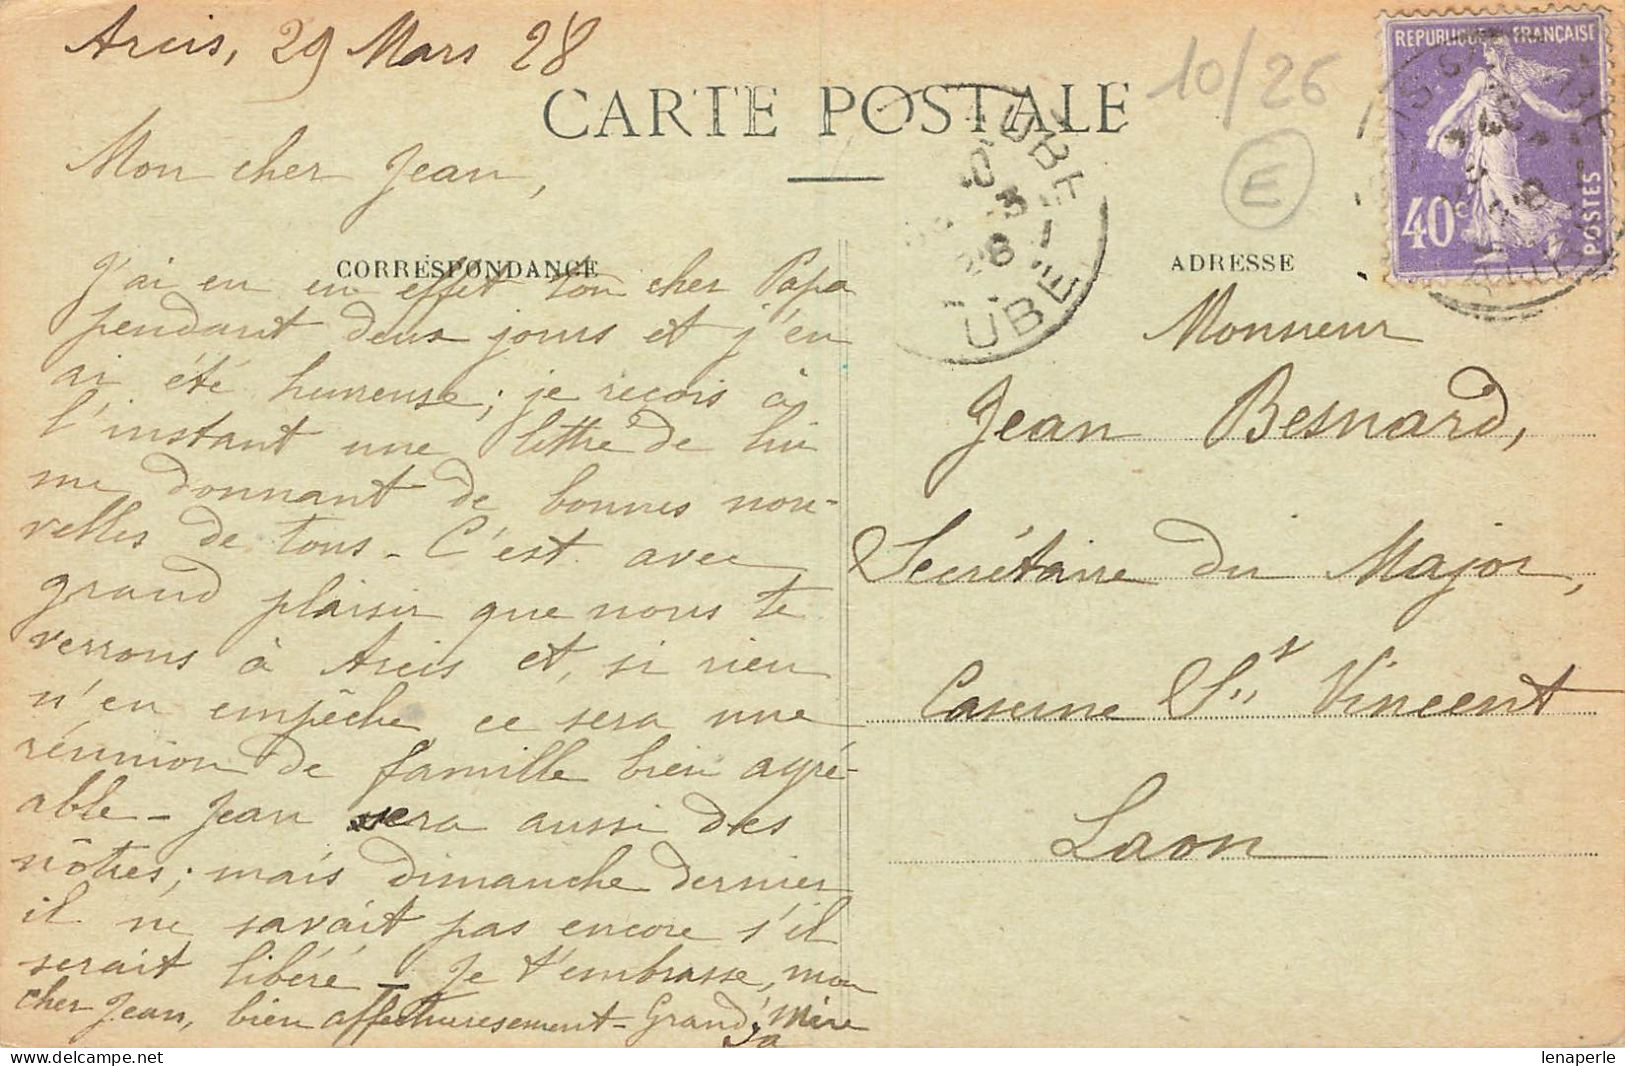 Arcis, 29 Mars 28
CARTE POSTALE
10/26
E
REPUBLIQUE FRANÇAISE
40c
POSTES
Mon cher Jean,
CORRESPONDANCE
J'ai eu en effet ton cher Papa
pendant deux jours et j'en
ai été heureuse; je reçois à
l'instant une lettre de lui
me donnant de bonnes nou-
velles de tous - C'est avec
grand plaisir que nous te
verrons à Arcis et, si rien
n'en empêche, ce sera une
réunion de famille bien agré-
able - Jean sera aussi des
nôtres; mais dimanche dernier
il ne savait pas encore s'il
serait libéré - Je t'embrasse, mon
cher Jean, bien affectueusement - Grand'Mère
Ja
ADRESSE
Monsieur
Jean Besnard,
Secrétaire du Major,
Caserne St Vincent
Laon
UBE
28
UBE
AUBE
lenaperle